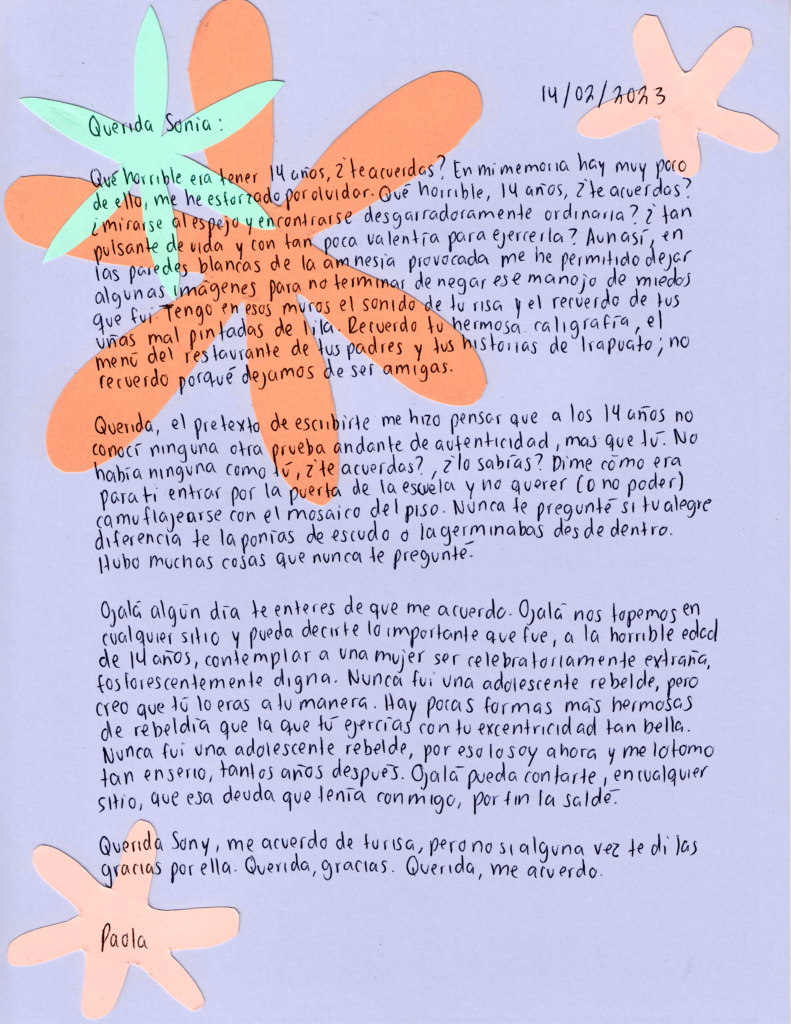 14/02/2023
Querida Sonia:
Qué horrible era tener 14 años, ¿te acuerdas? En mi memoria hay muy poco
de ello, me he esforzado por olvidar. Qué horrible, 14 años, ¿te acuerdas?
¿mirarse al espejo y encontrarse desgarradoramente ordinaria? ¿tan
pulsante de vida y con tan poca valentía para ejercerla? Aun así, en
las paredes blancas de la amnesia provocada me he permitido dejar
algunas imágenes para no terminar de negar ese manojo de miedos
que fui. Tengo en esos muros el sonido de tu risa y el recuerdo de tus
uñas mal pintadas de lila. Recuerdo tu hermosa caligrafía, el
menú del restaurante de tus padres y tus historias de Irapuato; no
recuerdo porqué dejamos de ser amigas.
Querida, el pretexto de escribirte me hizo pensar que a los 14 años no
conocí ninguna otra prueba andante de autenticidad, mas que tú. No
había ninguna como tú, ¿te acuerdas?, ¿lo sabías? Dime cómo era
para ti entrar por la puerta de la escuela y no querer (o no poder)
camuflajearse con el mosaico del piso. Nunca te pregunté si tu alegre
diferencia te la ponías de escudo o la germinabas desde dentro.
Hubo muchas cosas que nunca te pregunté.
Ojalá algún día te enteres de que me acuerdo. Ojalá nos topemos en
cualquier sitio y pueda decirte lo importante que fue, a la horrible edad
de 14 años, contemplar a una mujer ser celebratoriamente extraña,
fosforescentemente digna. Nunca fui una adolescente rebelde, pero
creo que tú lo eras a tu manera. Hay pocas formas más hermosas
de rebeldía que la que tú ejercías con tu excentricidad tan bella.
Nunca fui una adolescente rebelde, por eso lo soy ahora y me lo tomo
tan en serio, tantos años después. Ojalá pueda contarte, en cualquier
sitio, que esa deuda que tenía conmigo, por fin la saldé.
Querida Sony, me acuerdo de tu risa, pero no si alguna vez te di las
gracias por ella. Querida, gracias. Querida, me acuerdo.
Paola